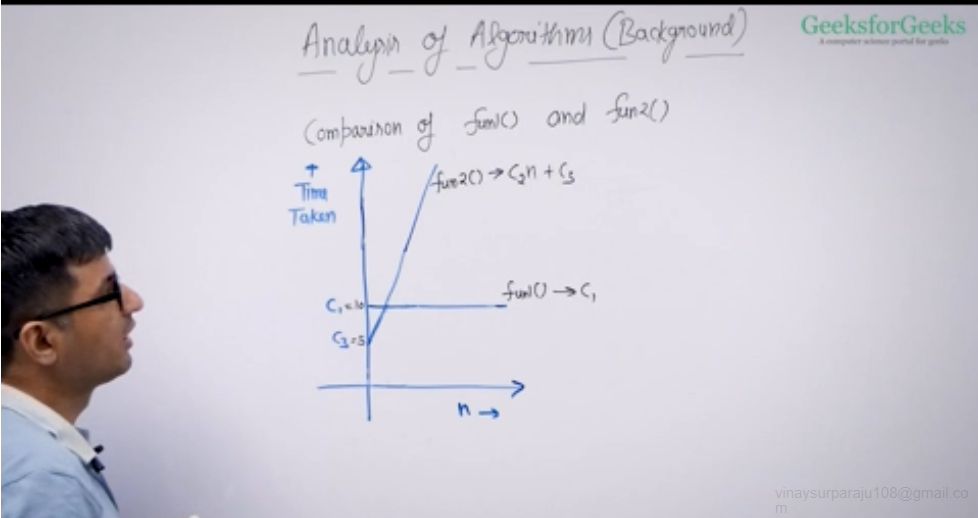 Analysis of Algorithms (Background)
GeeksforGeeks
A computer science portal for geeks
Comparison of fun1() and fun2()
Time
Taken
fun2() → C₂n + C₃
C₁=10
fun1() → C₁
C₃=5
n →
vinaysurparaju108@gmail.co
m